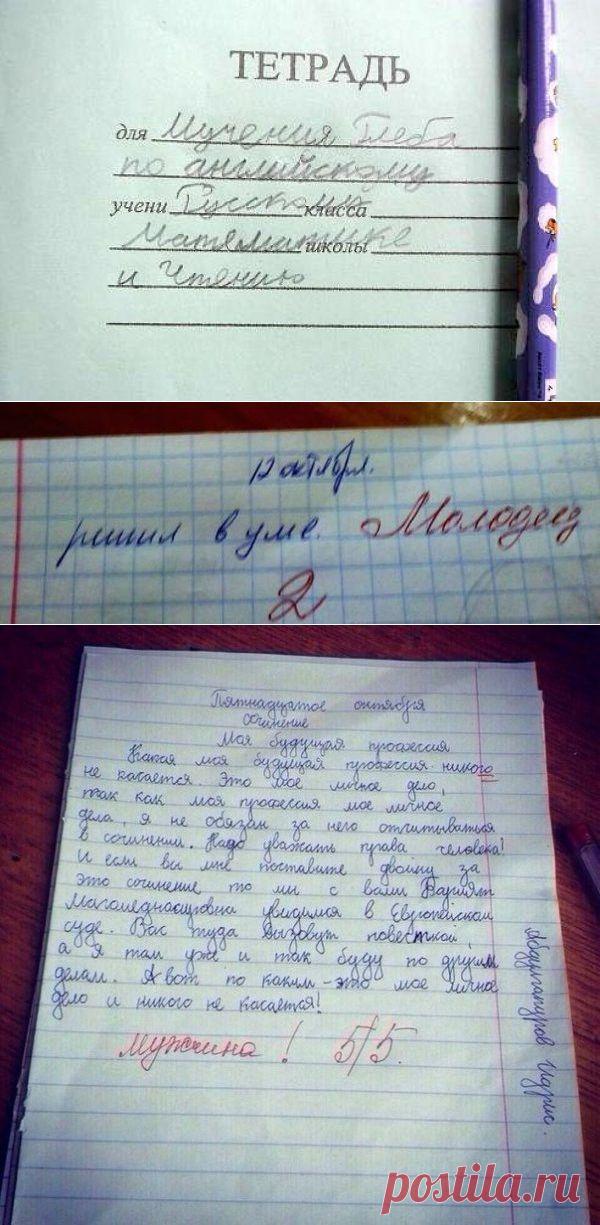 ТЕТРАДЬ
для Мучения Глеба
по английскому
учени Русскому класса
Матяматике школы
и Чтению
12 октября.
решил в уме. Молодец
2
Пятнадцатое октября
сочинение
Моя будущая профессия
Какая моя будущая профессия никого
не касается. Это мое личное дело,
так как моя профессия мое личное
дела, я не обязан за него отчитываться
в сочинении. Надо уважать права человека!
И если вы мне поставите двойку за
это сочинение то мы с вами Варият
Магомеднасировна увидимся в Европейском
суде. Вас туда вызовут повесткой,
а я там уже и так буду по другим
делам. А вот по каким - это мое личное
дело и никого не касается!
Мужчина! 5/5.
Абдулгапуров Идрис.
postila.ru